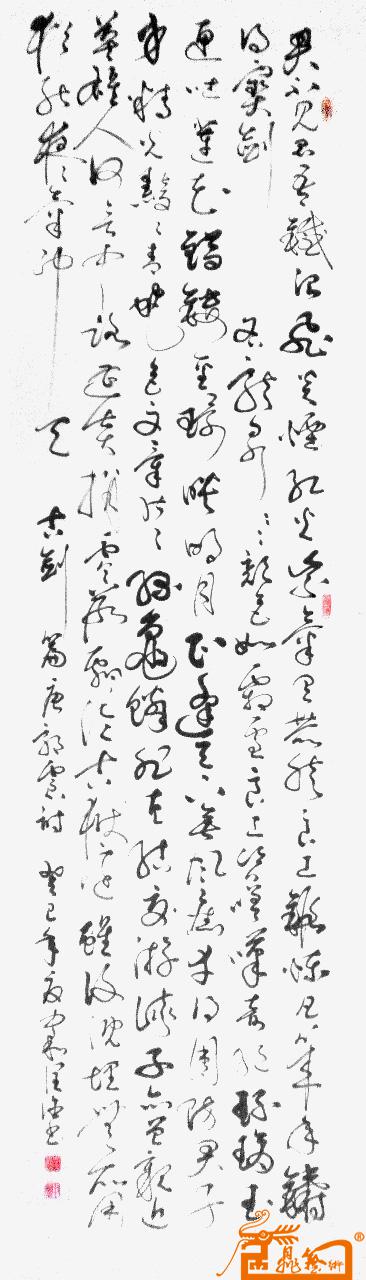 君不見昆吾鐵冶飛炎煙紅光紫氣俱赫然良工鍛煉凡幾年鑄
得寶劍名龍泉龍泉顏色如霜雪良工咨嗟嘆奇絕琉璃玉
匣吐蓮花錯鏤金環映明月正逢天下無風塵幸得周防君子
身精光黯黯青蛇色文章片片綠龜鱗非直結交游俠子亦曾親近
英雄人何言中路遭棄捐零落飄淪古獄邊雖復沉埋無所用
猶能夜夜氣沖天 古劍篇唐郭震詩 癸巳年夏 書